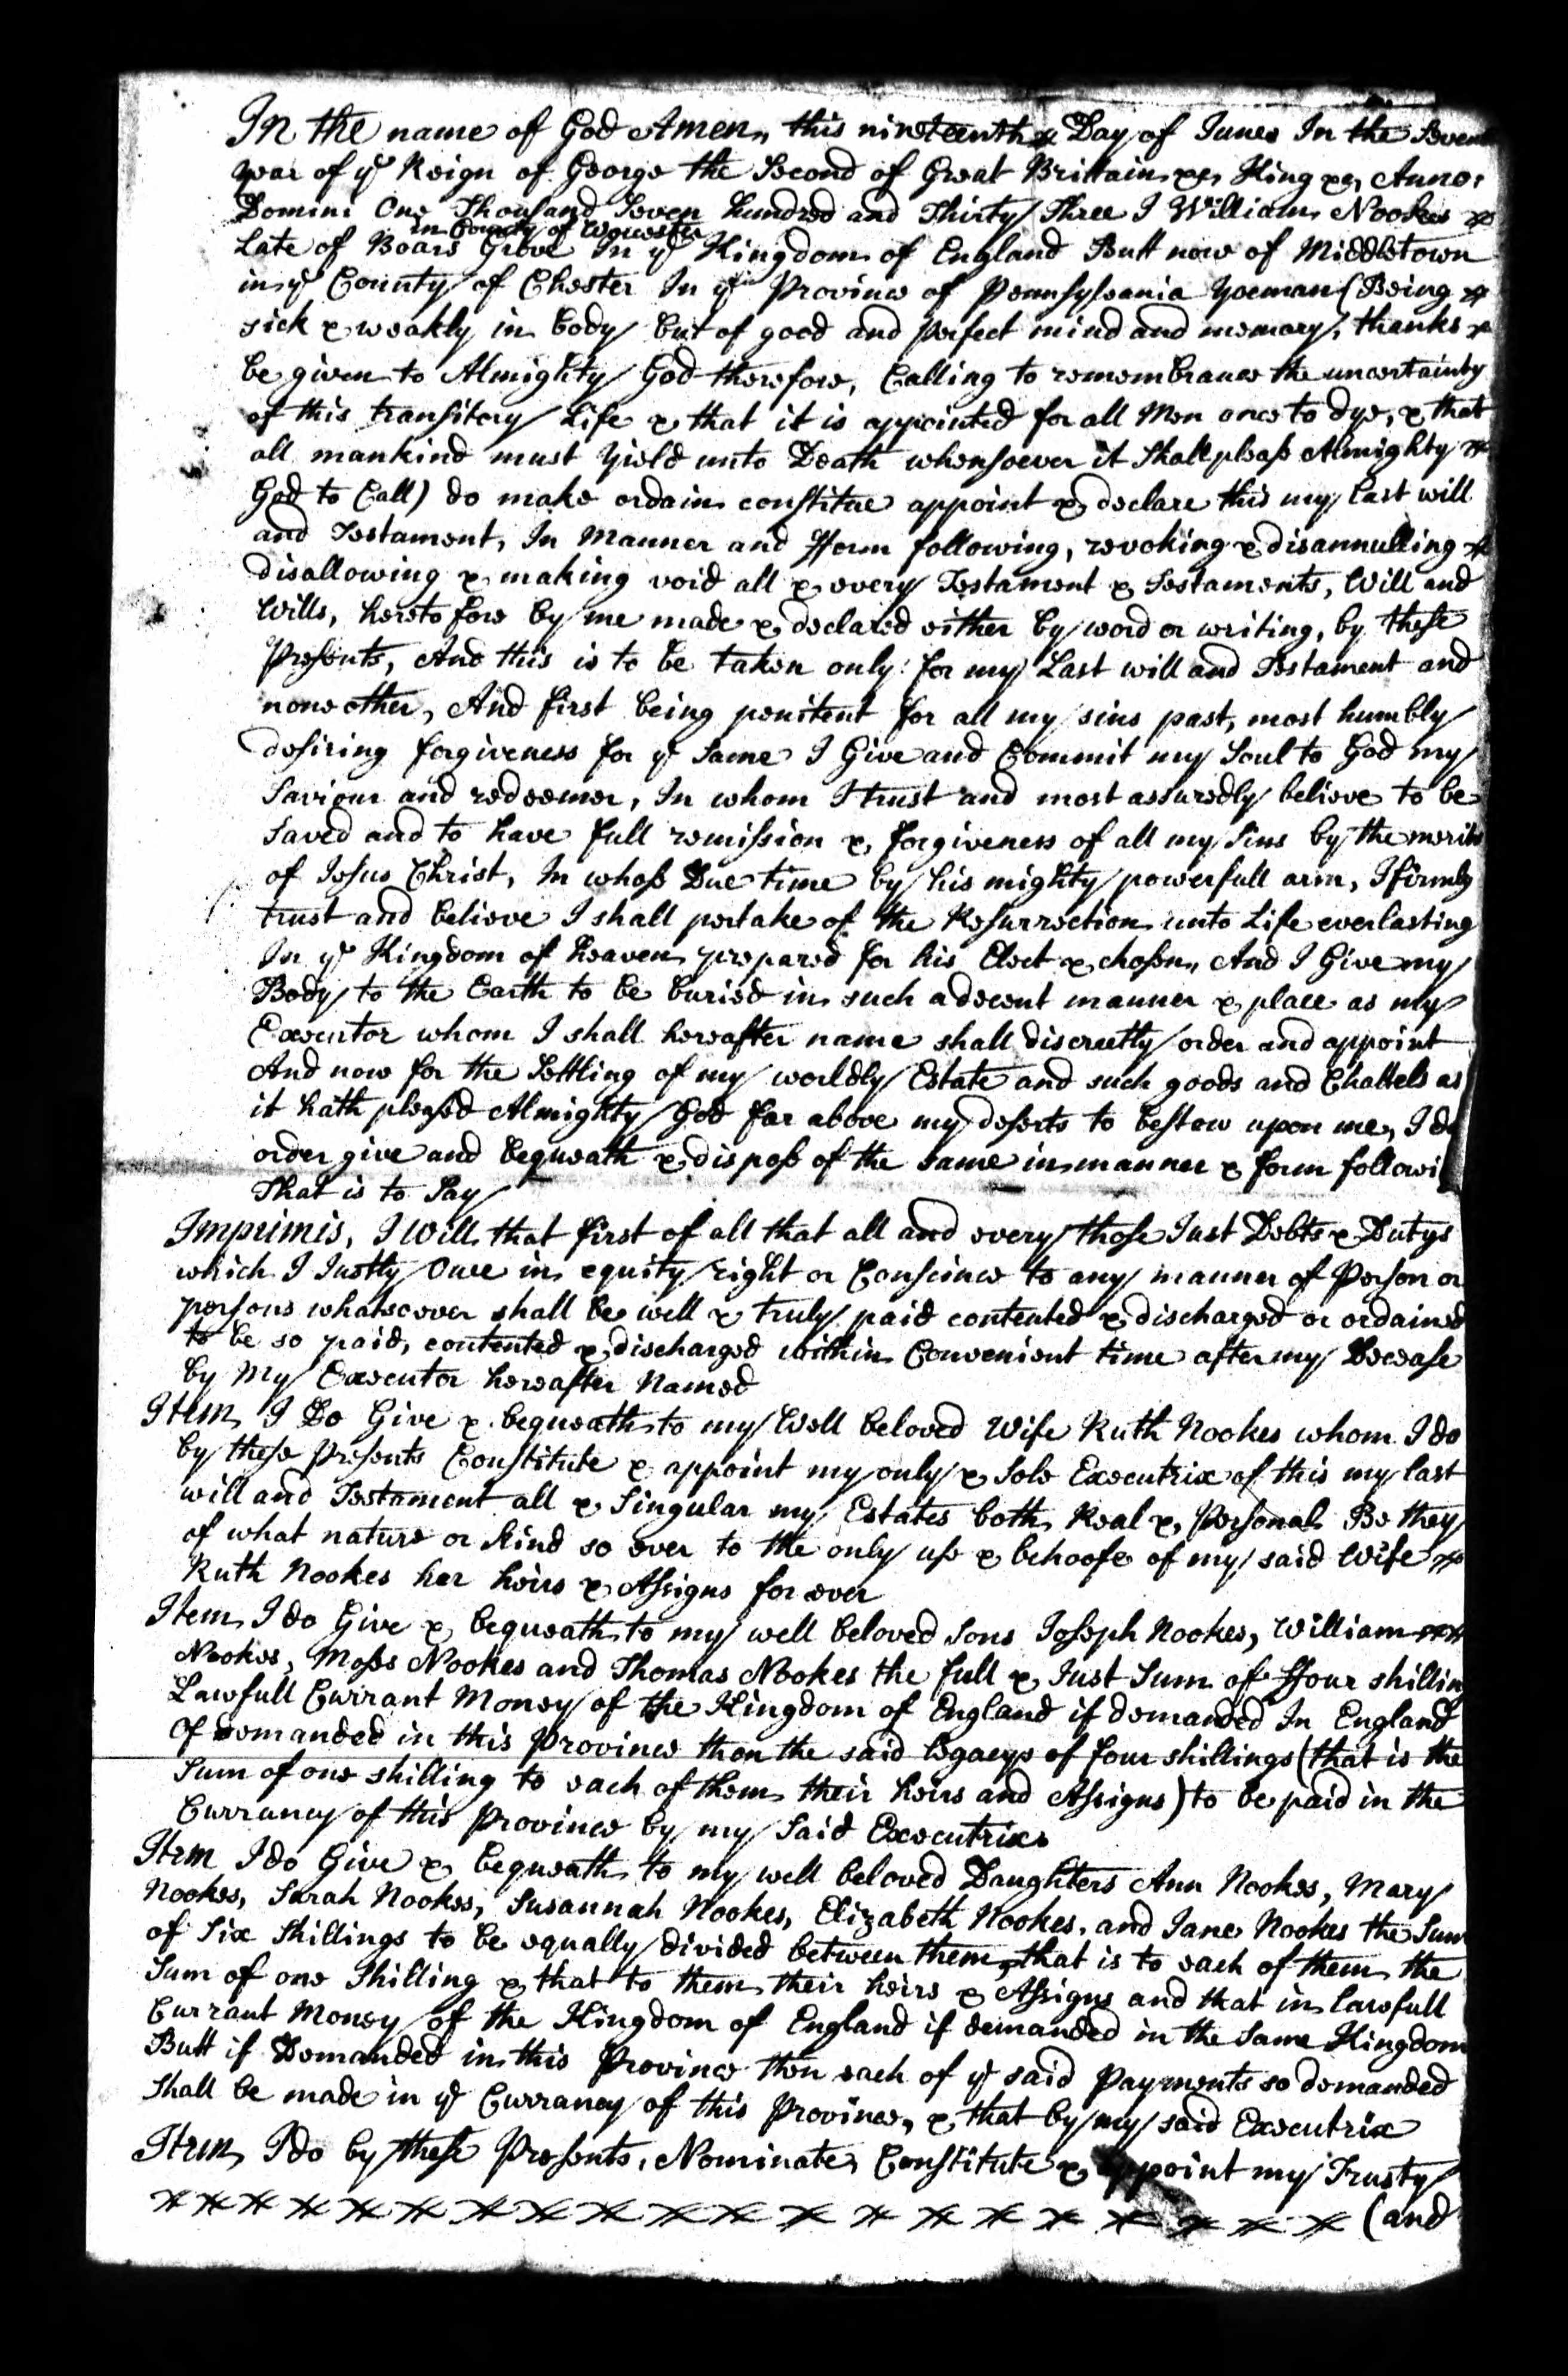 In the name of God Amen, this nineteenth Day of June In the Seven
year of ye Reign of George the Second of Great Brittain &c, King &c, Anno:
Domini One Thousand Seven hundred and Thirty Three I William Nookes
in County of Worcester
Late of Boars Grove In ye Kingdom of England Butt now of Middletown
in ye County of Chester In ye Province of Pennsylvania Yoeman (Being
sick & weakly in body but of good and perfect mind and memory, thanks
be given to Almighty God therefore, Calling to remembrance the uncertainty
of this transitory Life & that it is appointed for all Men once to dye, & that
all mankind must yield unto Death whensoever it Shall pleass Almighty
God to Call) do make ordain constitue appoint & declare this my last will
and Testament, In Manner and fform following, revoking & disannulling
disallowing & making void all & every Testament & Testaments, Will and
Wills, heretofore by me made & declared either by word or writing, by these
Presents, And this is to be taken only for my Last will and Testament and
none other, And first being penitent for all my sins past, most humbly
desiring forgiveness for ye same I Give and Commit my Soul to God my
Saviour and redeemer, In whom I trust and most assuredly believe to be
Saved and to have full remission & forgiveness of all my Sins by the merits
of Jesus Christ, In whoss Due time by his mighty powerfull arm, I firmly
trust and believe I shall pertake of the Resurrection unto Life everlasting
In ye Kingdom of heaven prepared for his Elect & chosen, And I Give my
Body to the Earth to be buried in such a decent manner & place as my
Executor whom I shall hereafter name shall discreetly order and appoint
And now for the Settling of my worldly Estate and such goods and Chattels as
it hath pleassd Almighty God far above my deserts to bestow upon me, I do
order give and bequeath & disposs of the same in manner & form followi
That is to Say
Imprimis, I Will that first of all that all and every those Just Debts & Dutys
which I Justly Owe in equity right or Conscince to any manner of Person or
persons whatsoever shall be well & truly paid contented & discharged or ordained
to be so paid, contented & discharged within Convenient time after my Decease
by My Executor hereafter Named
Item I Do Give & bequeath to my Well beloved Wife Ruth Nookes whom I do
by these Presents Constitute & appoint my only & Sole Executrix of this my last
will and Testament all & Singular my Estates both Real & Personal Be they
of what nature or kind so ever to the only uss & behoofe of my said Wife
Ruth Nookes her heirs & Assigns for ever
Item I do Give & bequeath to my well beloved Sons Joseph Nookes, William
Nookes, Moses Nookes and Thomas Nookes the full & Just Sum of ffour shilling
Lawfull Currant Money of the Kingdom of England if demanded In England
If demanded in this Province then the said legacys of four shillings (that is the
Sum of one shilling to each of them their heirs and Assigns) to be paid in the
Currancy of this Province by my Said Executrix
Item I do Give & bequeath to my well beloved Daughters Ann Nookes, Mary
Nookes, Sarah Nookes, Susannah Nookes, Elizabeth Nookes, and Jane Nookes the Sum
of Six Shillings to be equally divided between them, that is to each of them the
Sum of one Shilling & that to them their heirs & Assigns and that in lawfull
Currant Money of the Kingdom of England if demanded in the Same Kingdom
Butt if Demanded in this Province then each of ye said Payments so demanded
Shall be made in ye Currancy of this Province, & that by my said Executrix
Item I do by these Presents, Nominate, Constitute & Appoint my Trusty
(and